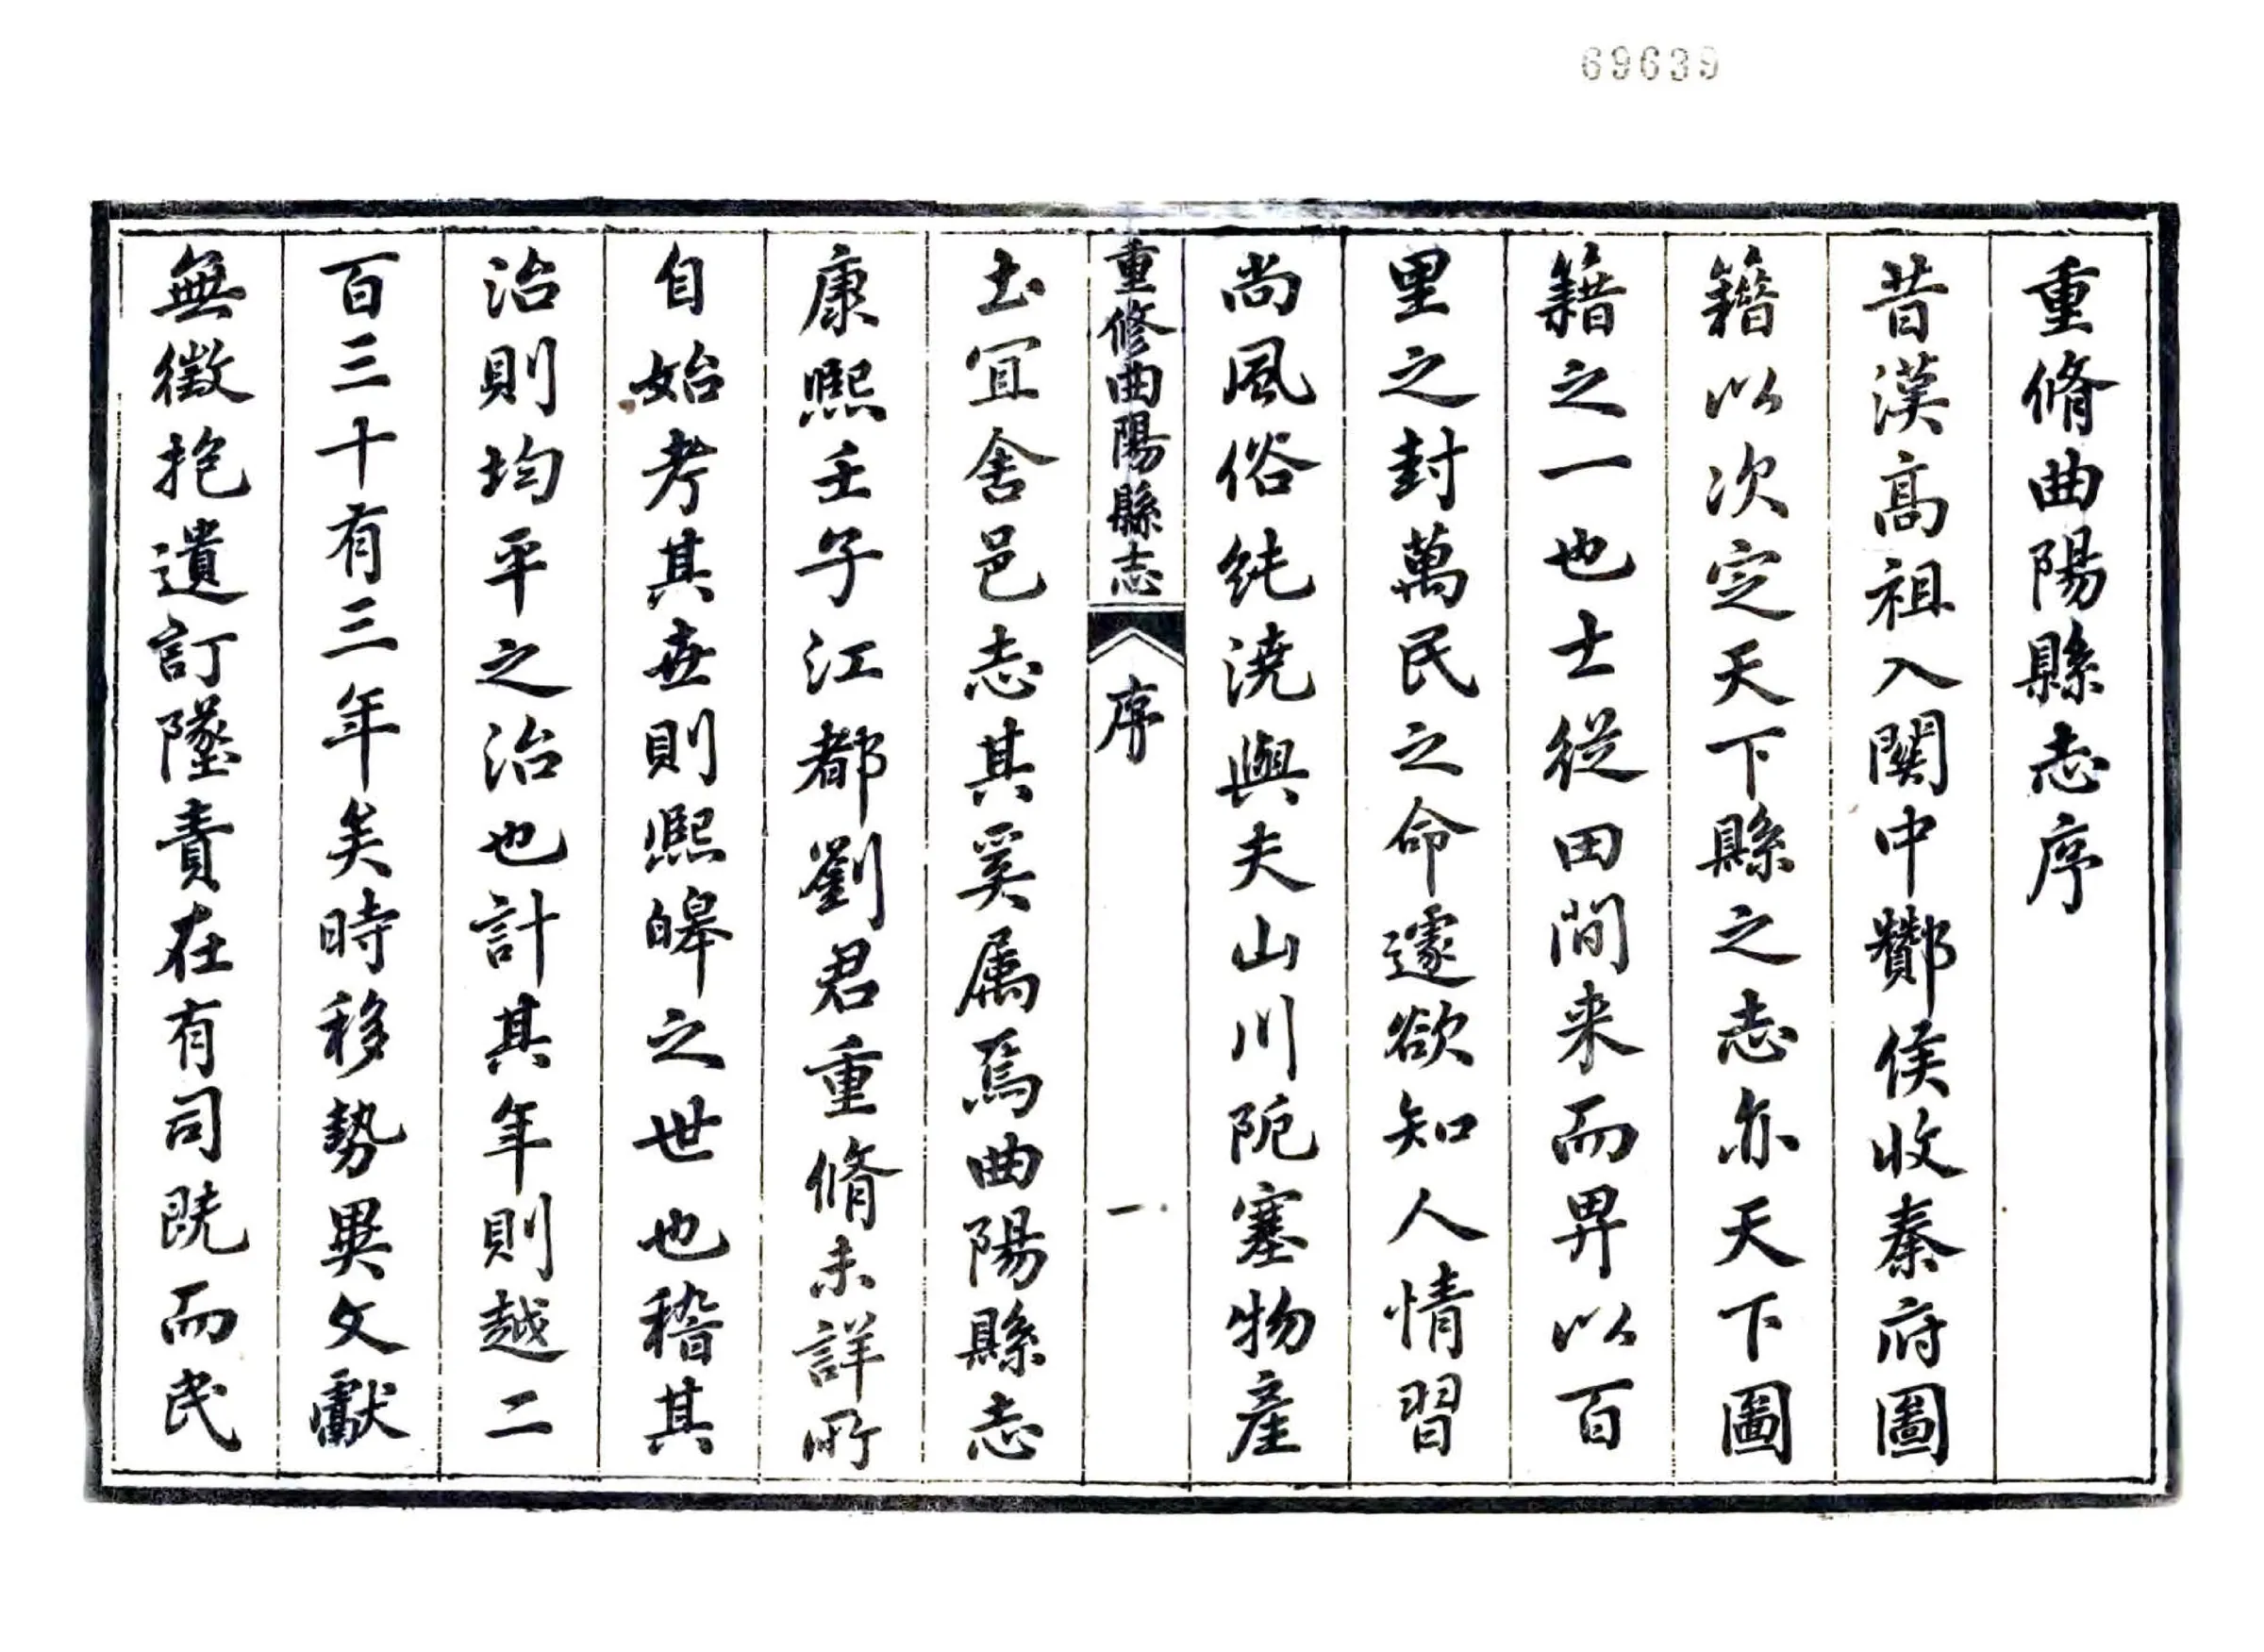 69639
重脩曲陽縣志序
昔漢高祖入關中酇侯收秦府圖
籍以次定天下縣之志亦天下圖
籍之一也士從田間来而畀以百
里之封萬民之命遽欲知人情習
尚風俗純澆與夫山川阨塞物產
重修曲陽縣志
序
一
土宜舍邑志其奚属焉曲陽縣志
康熙壬子江都劉君重脩未詳所
自始考其世則熙皞之世也稽其
治則均平之治也計其年則越二
百三十有三年矣時移勢異文獻
無徵抱遺訂墜責在有司既而民